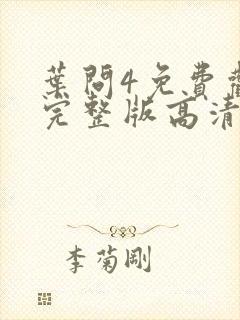 葉問4免費
完整版高清
李菊剛